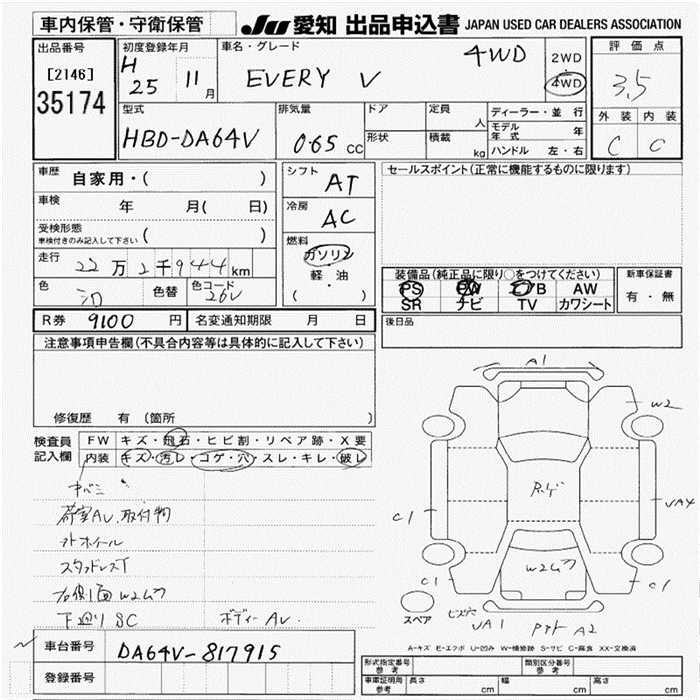 車内保管・守衛保管
JU 愛知 出品申込書 JAPAN USED CAR DEALERS ASSOCIATION
出品番号
[2146]
35174
初度登録年月
H
25 11 月
車名・グレード
EVERY V
4WD
2WD
4WD
評価点
3.5
外装 内装
C C
型式
HBD-DA64V
排気量
065 cc
ドア
形状
定員 人
積載 kg
ディーラー・並行
モデル年式 年
ハンドル 左・右
車歴 自家用・( )
車検 年 月( 日)
受検形態
車検付きのみ記入して下さい ( )
走行 22万2千944km
色 シロ 色替 色コード 26V
シフト
AT
冷房
AC
燃料
ガソリン
軽・油
( )
セールスポイント(正常に機能するものに限ります)
装備品(純正品に限り○をつけてください)
PS PW エアB AW
SR ナビ TV カワシート
新車保証書
有・無
R券 9100 円 名変通知期限 月 日
後日品
注意事項申告欄(不具合内容等は具体的に記入して下さい)
修復歴 有 (箇所 )
検査員記入欄
FW キズ・飛石・ヒビ割・リペア跡・X要
内装 キズ・汚レ・コゲ・穴・スレ・キレ・破レ
荷室AU.取付物
外ホイール
スタッドレスT
右側面W2
下廻りSC ボディーAU.
A1
W2
VA4
C1
C1
C1
W2
スペア
ビス穴
VA1
A2
A-キズ E-エクボ U-凹み W-補修跡 S-サビ C-腐食 XX-交換済
車台番号 DA64V-817915
登録番号
形式指定番号 参考
類別区分番号
車庫証明用 参考 長さ cm 幅 cm 高さ cm